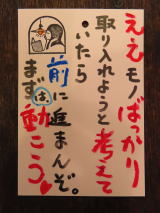 ええモノばっかり
取り入れようと考えて
いたら
前に進まんぞ。
まずは動こう